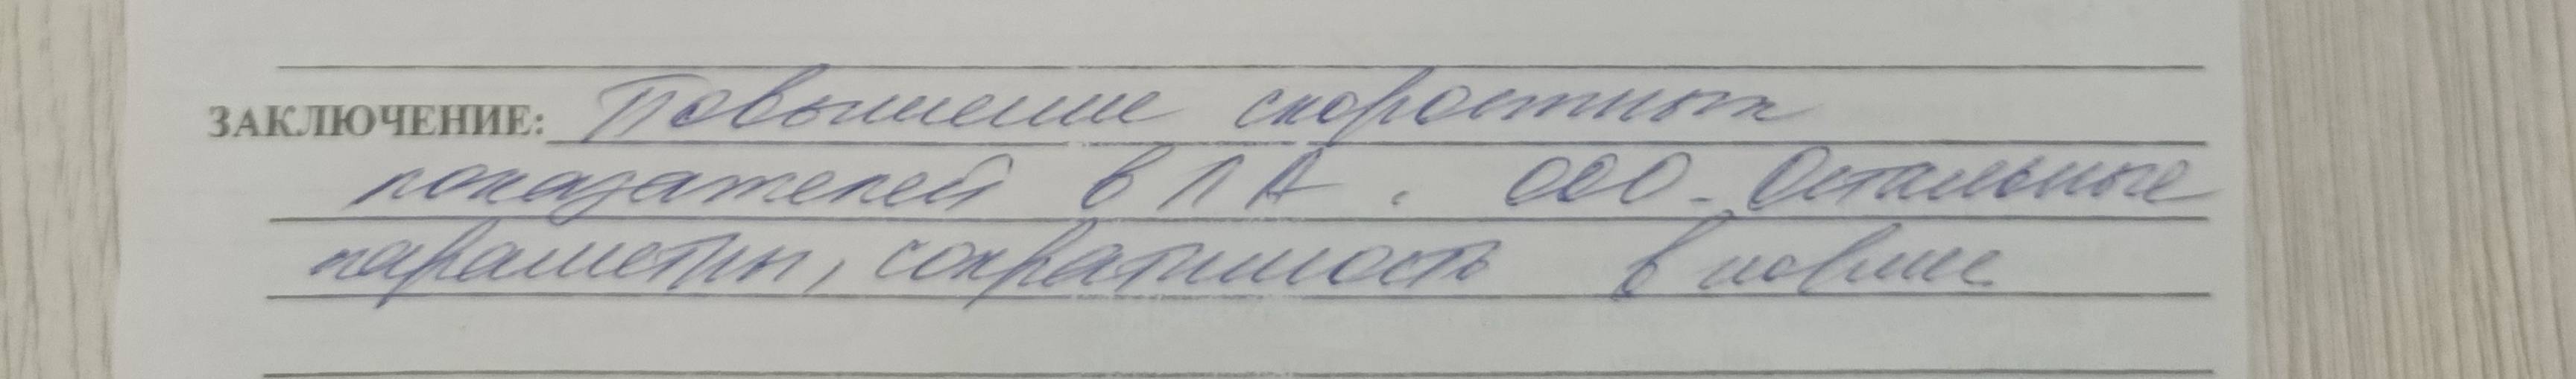 ЗАКЛЮЧЕНИЕ: Повышение скоростных
показателей в ЛА. ООО - Остальные
параметры, сократимость в норме.